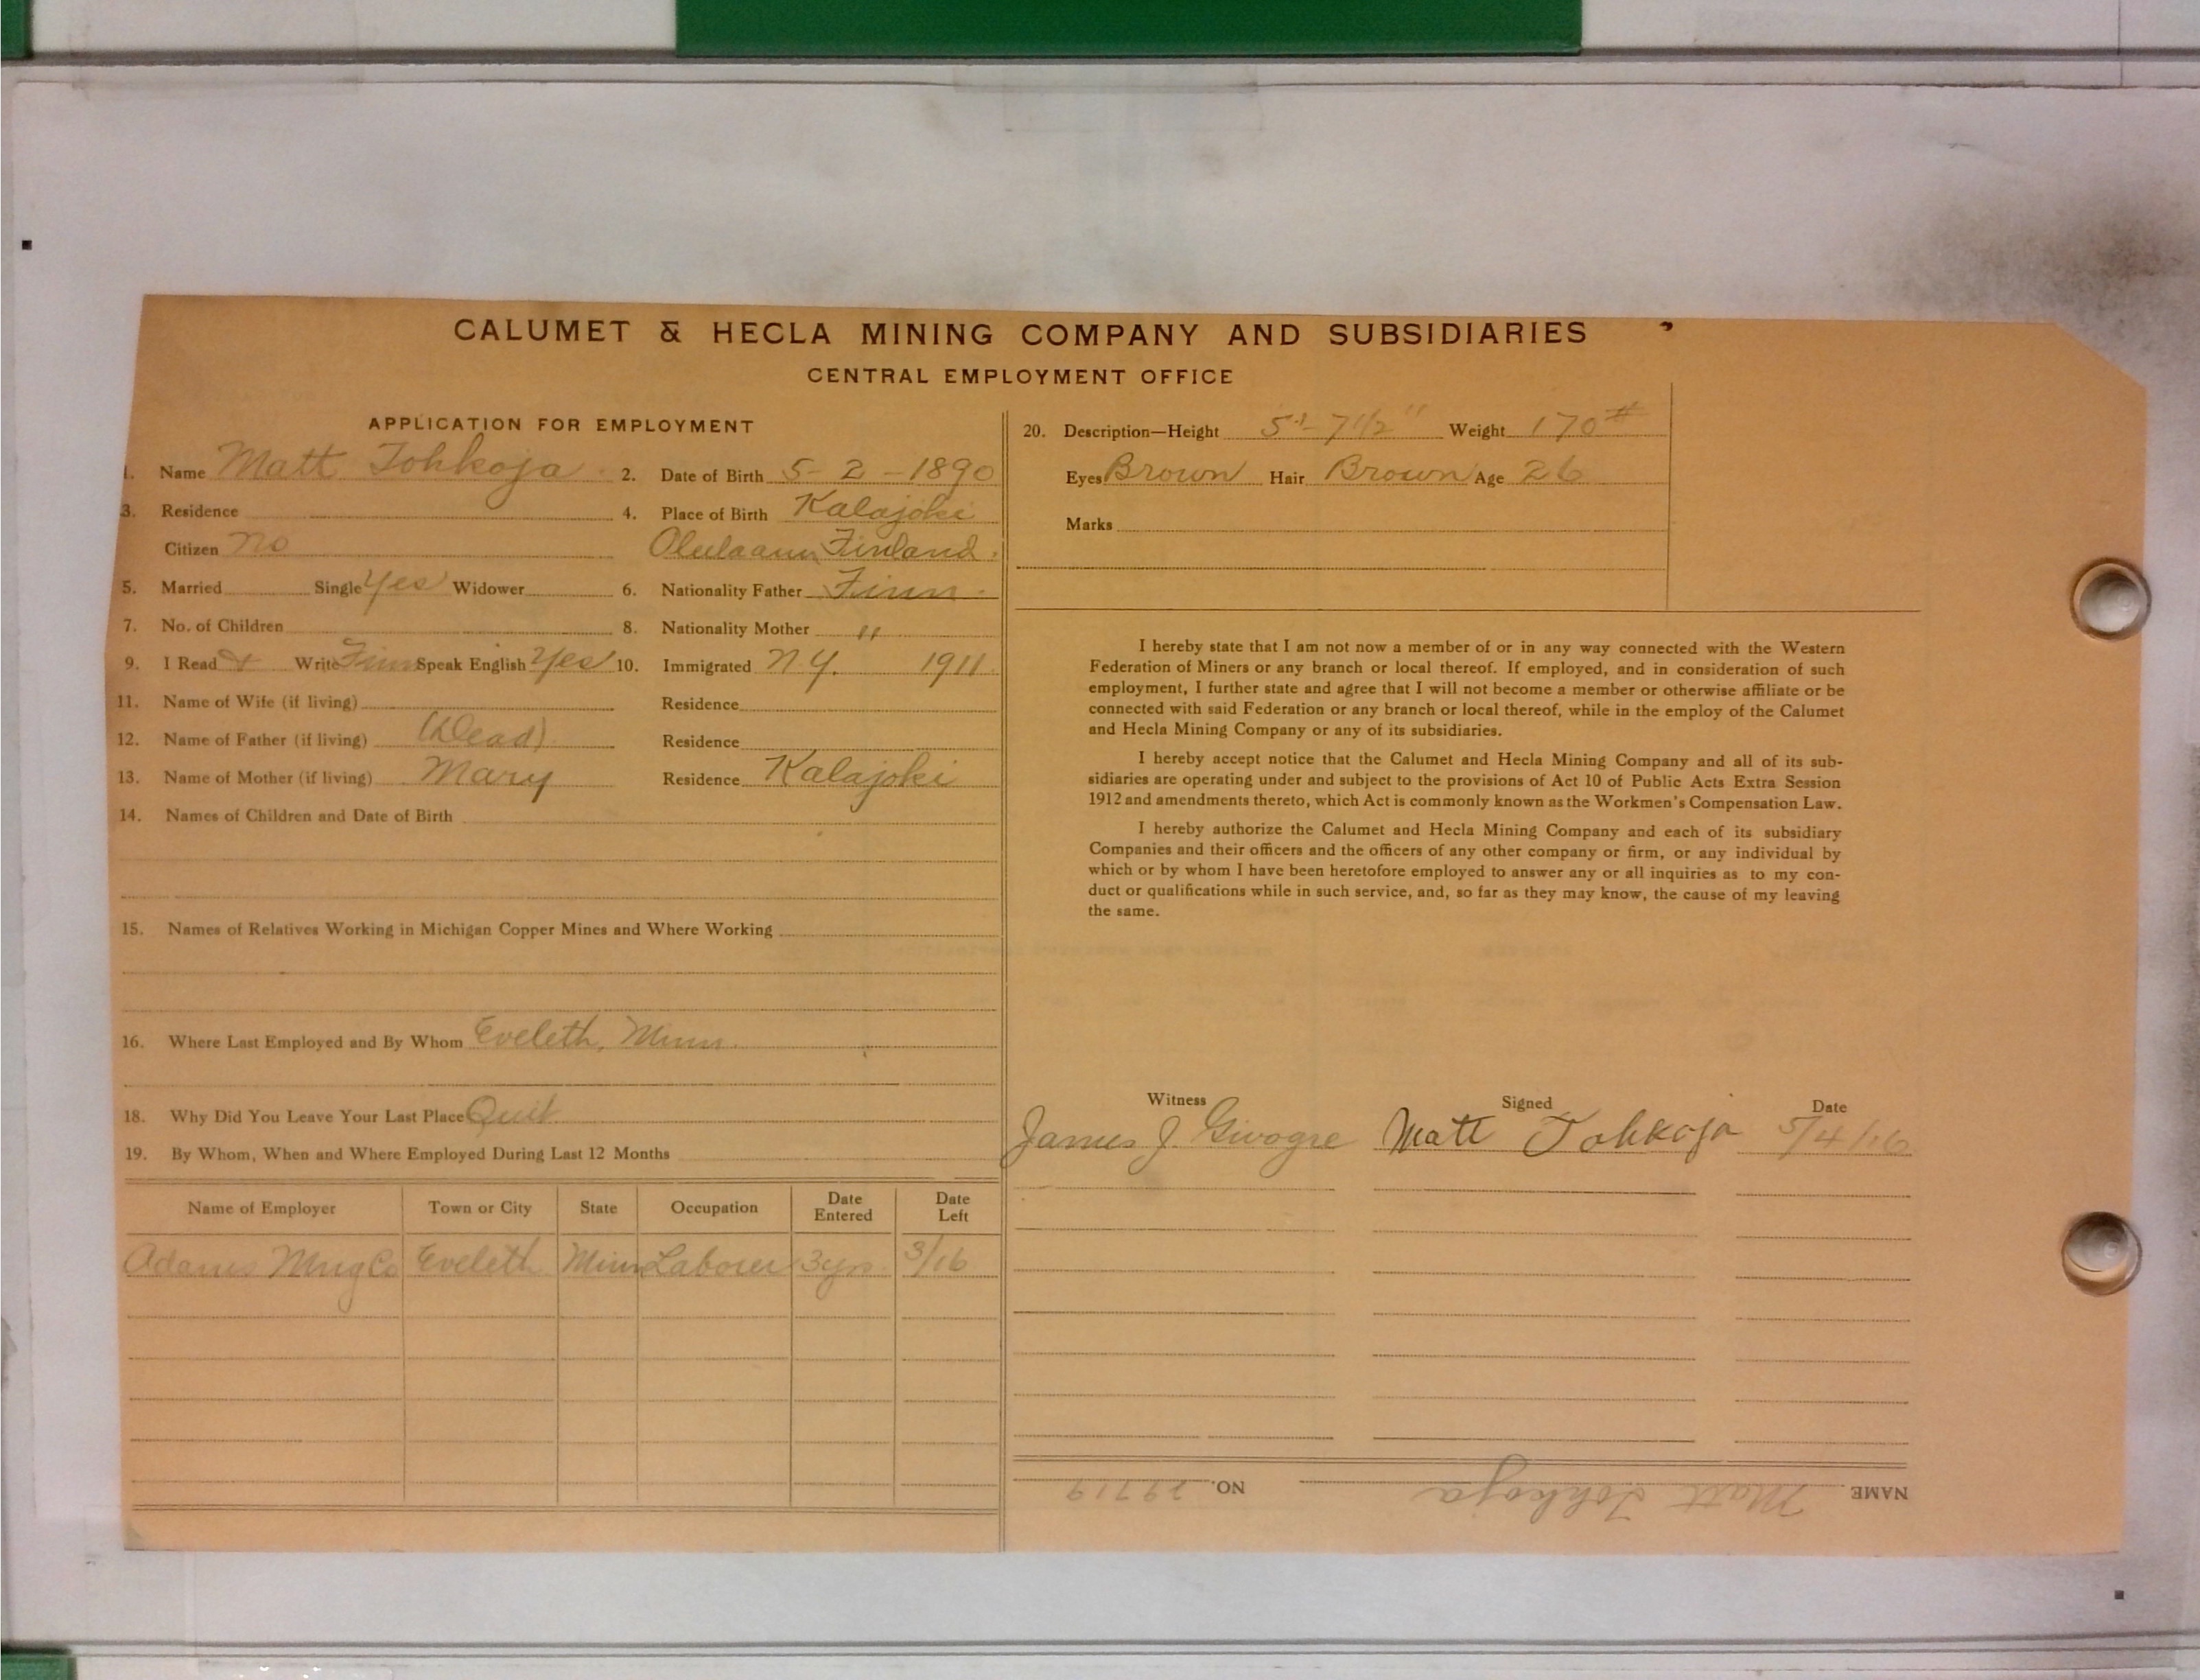 CALUMET & HECLA MINING COMPANY AND SUBSIDIARIES
CENTRAL EMPLOYMENT OFFICE
APPLICATION FOR EMPLOYMENT
1. Name Matt Tohkoja 2. Date of Birth 5-2-1890
3. Residence 4. Place of Birth Kalajoki
Citizen No Finland.
5. Married Single Yes Widower 6. Nationality Father Finn.
7. No. of Children 8. Nationality Mother "
9. I Read & Write Finn Speak English Yes 10. Immigrated N.Y. 1911
11. Name of Wife (if living) Residence
12. Name of Father (if living) (Dead) Residence
13. Name of Mother (if living) Mary Residence Kalajoki
14. Names of Children and Date of Birth
15. Names of Relatives Working in Michigan Copper Mines and Where Working
16. Where Last Employed and By Whom Eveleth, Minn.
18. Why Did You Leave Your Last Place Quit
19. By Whom, When and Where Employed During Last 12 Months
Name of Employer Town or City State Occupation Date Entered Date Left
Adams Mng Co Eveleth Minn Laborer 3 yrs. 3/16
20. Description—Height 5'-7 1/2" Weight 170#
Eyes Brown Hair Brown Age 26
Marks
I hereby state that I am not now a member of or in any way connected with the Western
Federation of Miners or any branch or local thereof. If employed, and in consideration of such
employment, I further state and agree that I will not become a member or otherwise affiliate or be
connected with said Federation or any branch or local thereof, while in the employ of the Calumet
and Hecla Mining Company or any of its subsidiaries.
I hereby accept notice that the Calumet and Hecla Mining Company and all of its sub-
sidiaries are operating under and subject to the provisions of Act 10 of Public Acts Extra Session
1912 and amendments thereto, which Act is commonly known as the Workmen's Compensation Law.
I hereby authorize the Calumet and Hecla Mining Company and each of its subsidiary
Companies and their officers and the officers of any other company or firm, or any individual by
which or by whom I have been heretofore employed to answer any or all inquiries as to my con-
duct or qualifications while in such service, and, so far as they may know, the cause of my leaving
the same.
Witness Signed Date
James J. Matt Tohkoja 5/4/16
NAME Matt Tohkoja NO.